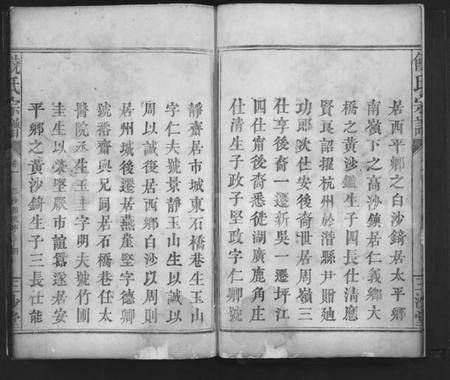 饒氏宗譜
居西平鄉之白沙錡居太平鄉
南嶺下之高沙鎮居仁義鄉大
橋之黃沙鑑生子四長仕清應
賢良詔擢杭州於潛縣尹贈廸
功郎次仕安後裔世居周嶺三
仕享後裔一遷新吳一遷坪江
四仕甯後裔悉徙湖廣鹿角庄
仕清生子政子堅政字仁卿號
靜齋居市城東石橋巷生玉山
字仁夫號景靜玉山生以誠以
周以誠復居西鄉白沙以周則
居州城後遷居燕崖堅字德卿
號稽齋與兄同居石橋巷任太
醫院丞生玉圭字明夫號竹圃
圭生以榮堅厭市諠囂遂居安
平鄉之黃沙錡生子三長仕能
饒氏宗譜